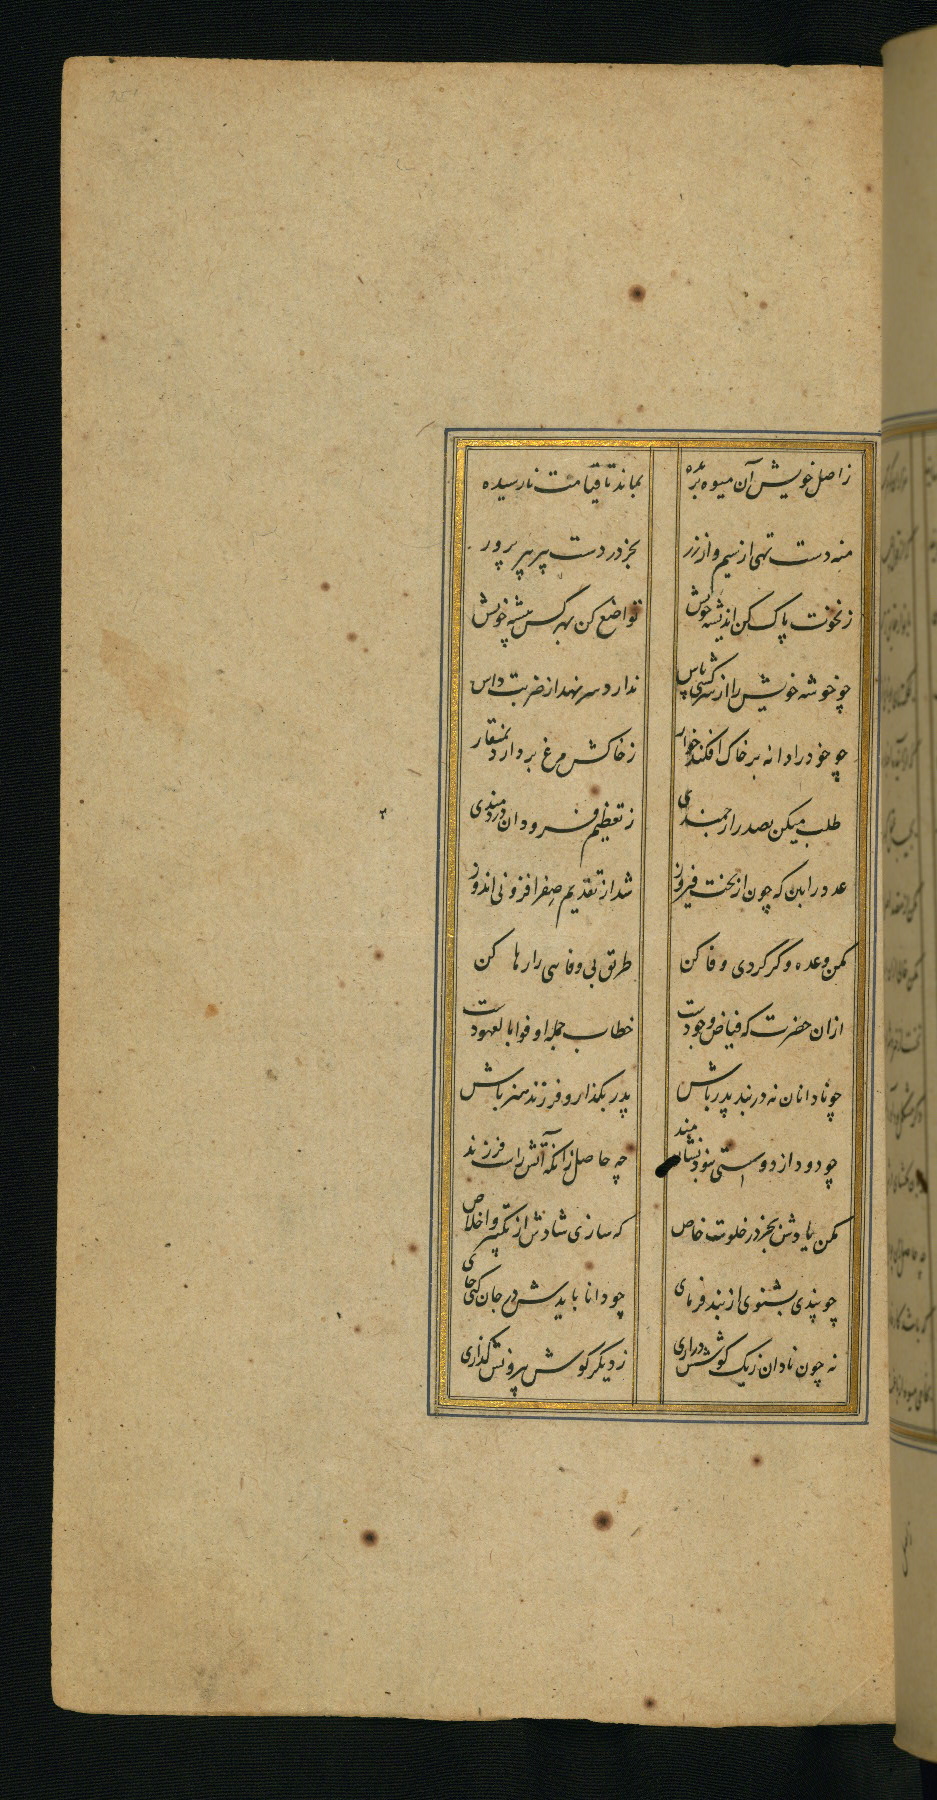 ز اصل خویش آن میوه بریده بماند تا قیامت نارسیده
منه دست تهی از سیم و از زر بجز در دست پیر پیر پرور
ز نخوت پاک کن اندیشه خویش تواضع کن بهر کس پیشه خویش
چو خوشه خویش را از سرکشی پاس ندارد سر نهد از ضربت داس
چو خود را دانه بر خاک افکند خوار ز خاکش مرغ بردارد بمنقار
طلب میکن بصدر ارجمندی ز تعظیم فرودان
عدد را بین که چون از بخت فیروز شد از تقدیم صفر افزونی اندوز
مکن وعده و گر کردی وفا کن طریق بی وفایی را رها کن
ازان حضرت که فیاض وجودست خطاب جمله اوفوا بالعهودست
چو نادانان نه در بند پدر باش پدر بگذار و فرزند هنر باش
چو دود از دوستی نبود نشان مند چه حاصل زانکه آتش راست فرزند
مکن یادش بجز در خلوت خاص که سازی شادش از تکبیر و اخلاص
چو پندی بشنوی از پند فرمای چو دانا بایدش در جان کنی جای
نه چون نادان ز یک گوشش درآری ز دیگر گوش بیرونش گذاری